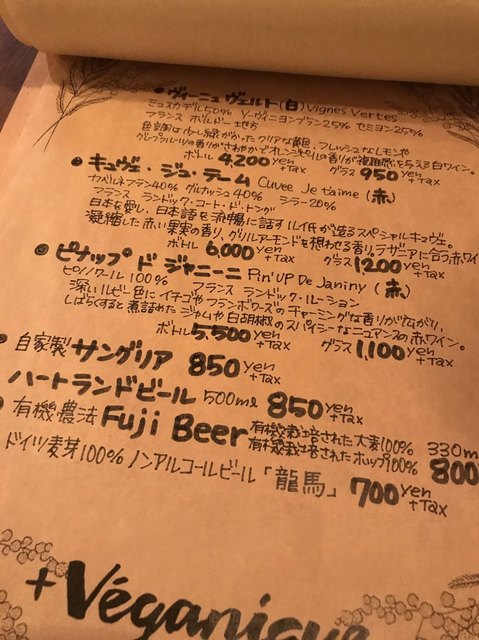 ヴィーニュ ヴェルト (白) Vignes Vertes
ミュスカデル50% ソーヴィニヨンブラン25% セミヨン25%
フランス ボルドー地方
色調は少し緑がかったクリアな黄色 フレッシュなレモンや
グレープフルーツの香りがさわやかでオレンジピールの香りが複雑感を与える白ワイン。
ボトル 4,200yen +Tax グラス 950yen +Tax
キュヴェ・ジュ・テーム Cuvee Je t'aime (赤)
カベルネフラン40% グルナッシュ40% シラー20%
フランス ランドック・コート・ド・トング
日本を愛し、日本語を流暢に話すルイ氏が造るスペシャルキュヴェ。
凝縮した赤い果実の香り、グリルアーモンドを想わせる香り。ラザニアに合う赤ワイン
ボトル 6,000yen +Tax グラス 1200yen +Tax
ピナップ ド ジャニーニ Pin'UP De Janiny (赤)
ピノノワール 100% フランス ランドック・ルーション
深いルビー色にイチゴやフランボワーズのチャーミングな香りが広がり、
しばらくすると煮詰めたジャムや白胡椒のスパイシーなニュアンスの赤ワイン。
ボトル 5,500yen +Tax グラス 1,100yen +Tax
自家製 サングリア 850yen +Tax
ハートランドビール 500ml 850yen +Tax
有機農法 Fuji Beer 有機栽培された大麦100% 330m
有機栽培されたホップ100% 800
ドイツ麦芽100% ノンアルコールビール「龍馬」 700yen +Tax
+ Véganique